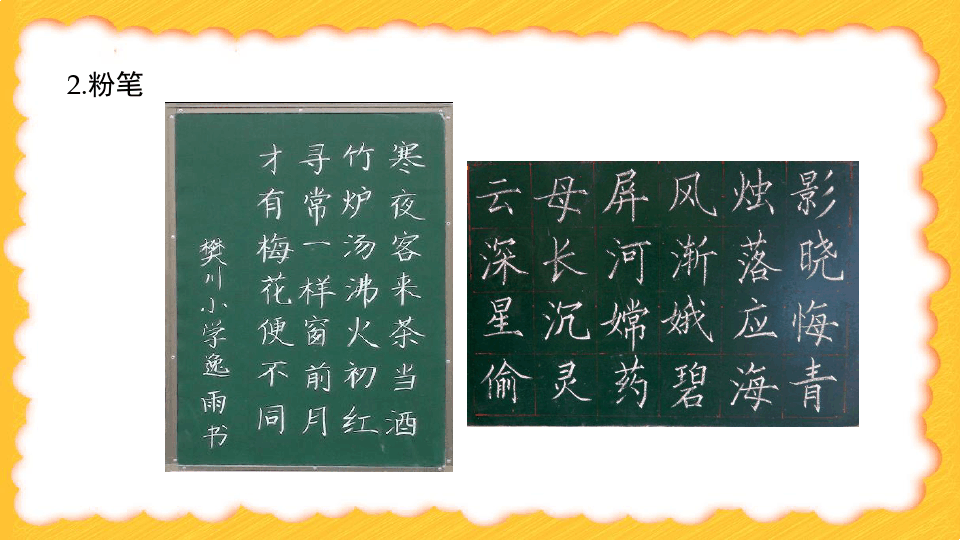 2.粉笔
寒夜客来茶当酒
竹炉汤沸火初红
寻常一样窗前月
才有梅花便不同
樊川小学逸雨书
云母屏风烛影
深长河渐落晓
星沉嫦娥应悔
偷灵药碧海青